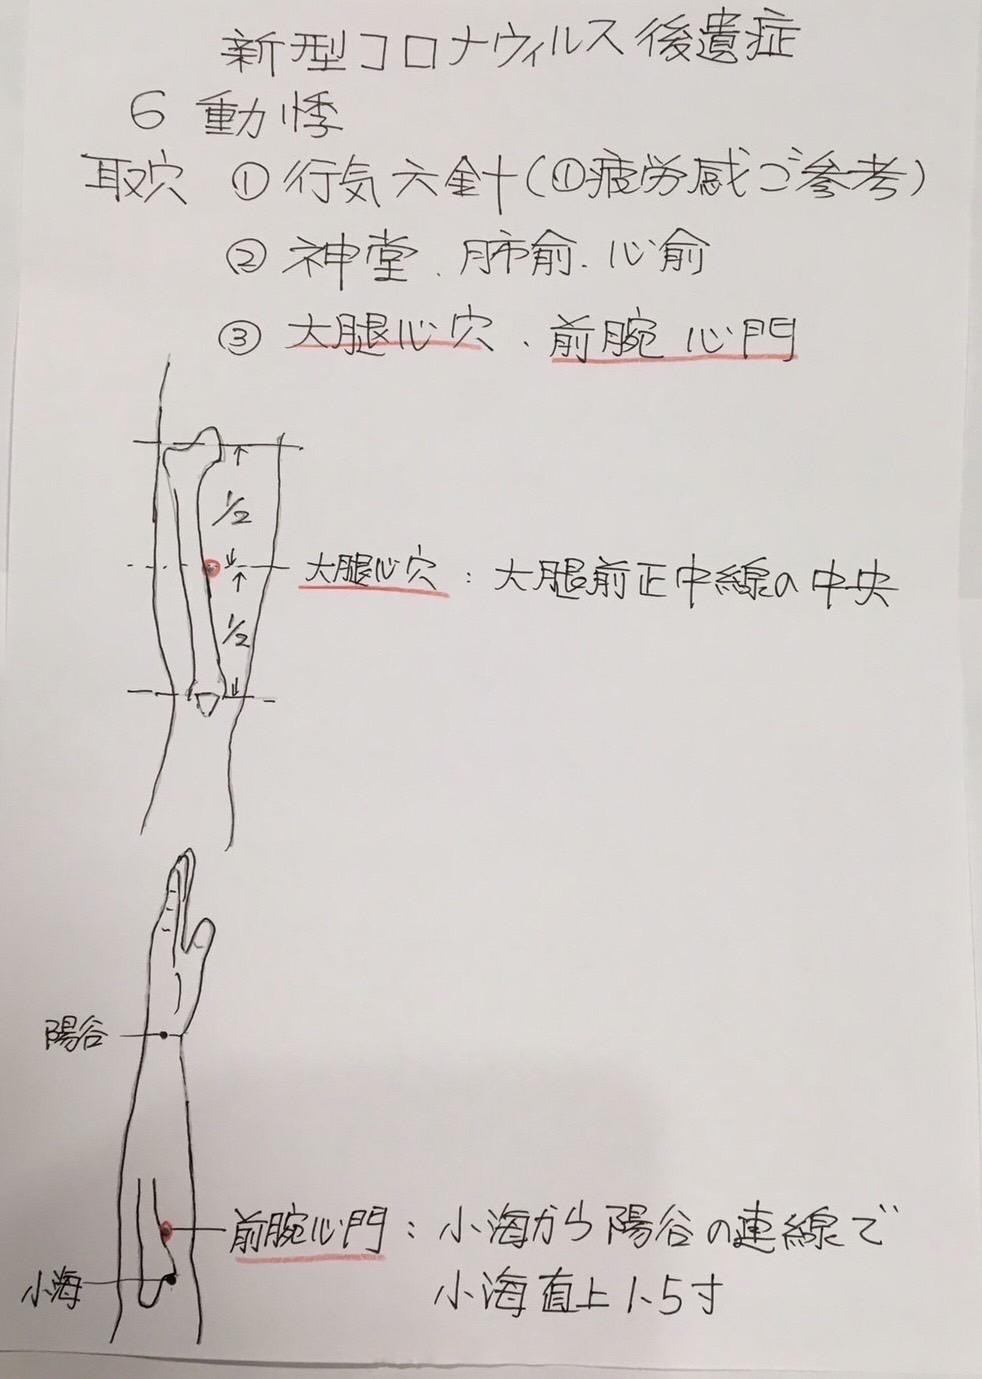 新型コロナウィルス後遺症
6 動悸
取穴 ① 行気六針(①疲労感ご参考)
② 神堂、肺俞、心俞
③ 大腿心穴、前腕心門
1/2
大腿心穴：大腿前正中線の中央
1/2
陽谷
前腕心門：小海から陽谷の連線で
小海
小海直上1.5寸